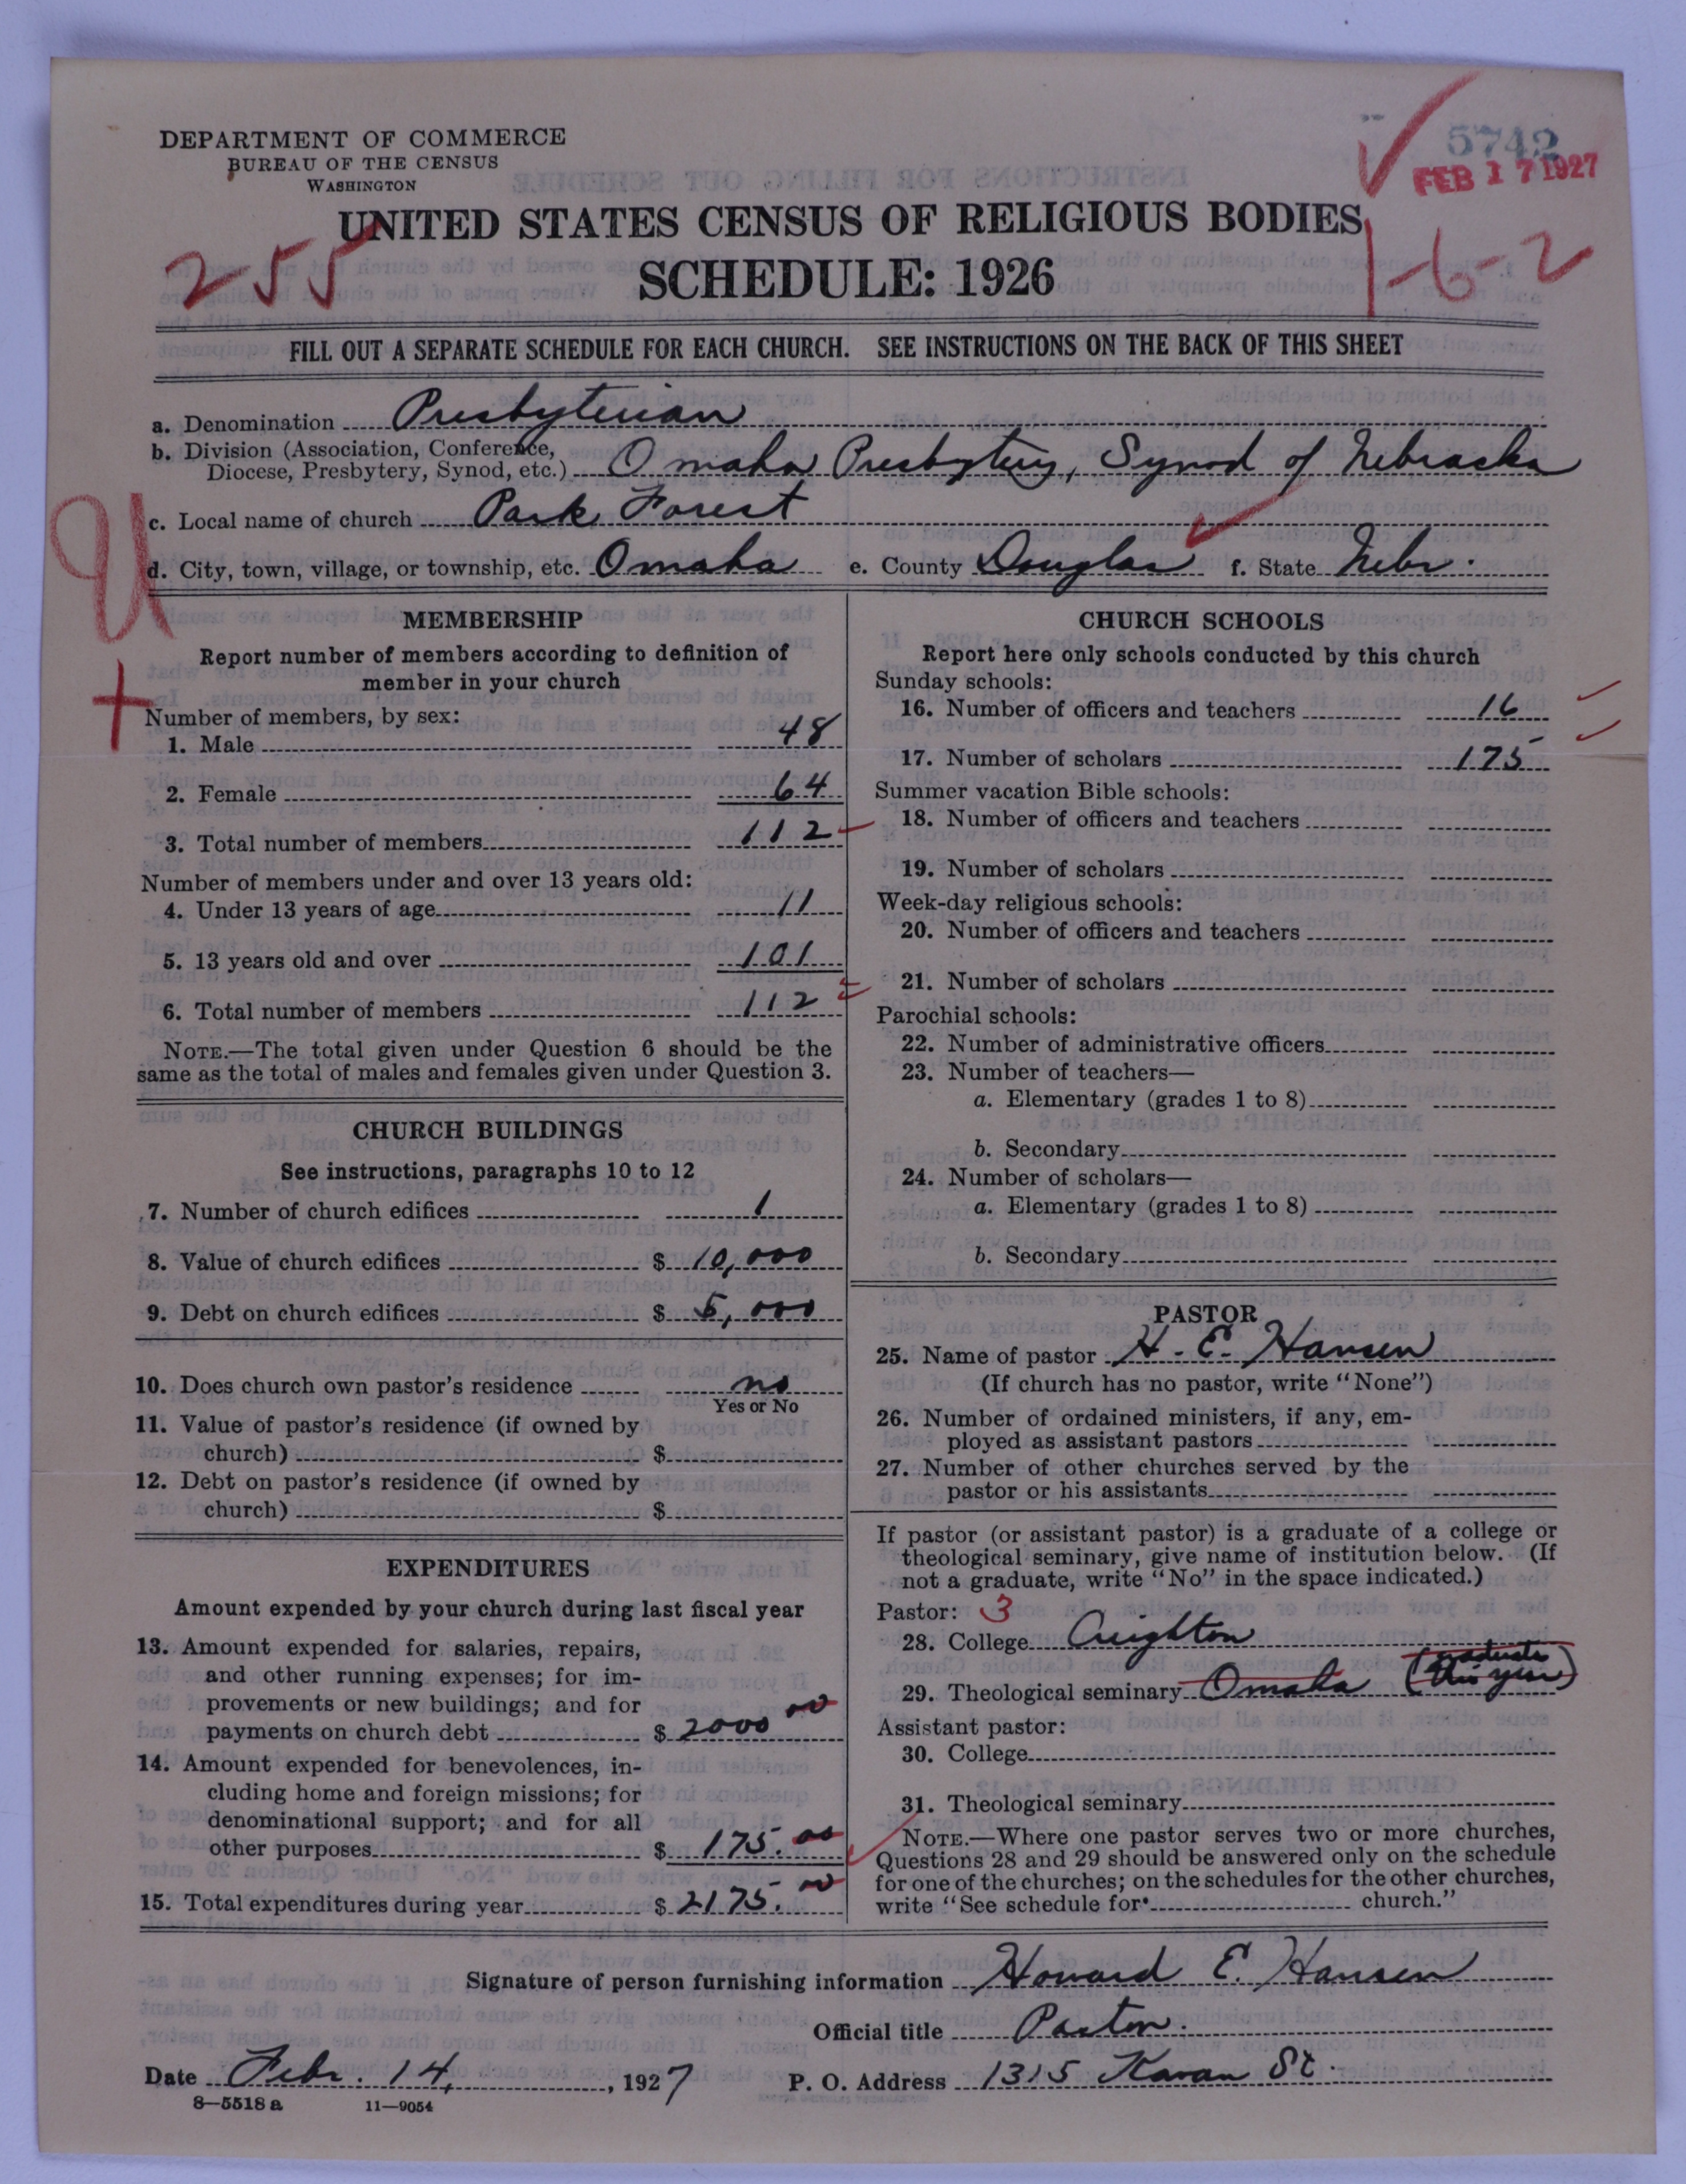 DEPARTMENT OF COMMERCE
BUREAU OF THE CENSUS
WASHINGTON
5742
FEB 17 1927
UNITED STATES CENSUS OF RELIGIOUS BODIES
SCHEDULE: 1926
255
1-6-2
FILL OUT A SEPARATE SCHEDULE FOR EACH CHURCH. SEE INSTRUCTIONS ON THE BACK OF THIS SHEET
a. Denomination Presbyterian
b. Division (Association, Conference,
Diocese, Presbytery, Synod, etc.) Omaha Presbytery, Synod of Nebraska
c. Local name of church Park Forest
d. City, town, village, or township, etc. Omaha e. County Douglas f. State Nebr.
MEMBERSHIP
Report number of members according to definition of
member in your church
Number of members, by sex:
1. Male 48
2. Female 64
3. Total number of members 112
Number of members under and over 13 years old:
4. Under 13 years of age 11
5. 13 years old and over 101
6. Total number of members 112
NOTE.—The total given under Question 6 should be the
same as the total of males and females given under Question 3.
CHURCH BUILDINGS
See instructions, paragraphs 10 to 12
7. Number of church edifices 1
8. Value of church edifices $ 10,000
9. Debt on church edifices $ 5,000
10. Does church own pastor's residence no
Yes or No
11. Value of pastor's residence (if owned by
church) $
12. Debt on pastor's residence (if owned by
church) $
EXPENDITURES
Amount expended by your church during last fiscal year
13. Amount expended for salaries, repairs,
and other running expenses; for im-
provements or new buildings; and for
payments on church debt $ 2000 00
14. Amount expended for benevolences, in-
cluding home and foreign missions; for
denominational support; and for all
other purposes $ 175.00
15. Total expenditures during year $ 2175.00
CHURCH SCHOOLS
Report here only schools conducted by this church
Sunday schools:
16. Number of officers and teachers 16
17. Number of scholars 175
Summer vacation Bible schools:
18. Number of officers and teachers
19. Number of scholars
Week-day religious schools:
20. Number of officers and teachers
21. Number of scholars
Parochial schools:
22. Number of administrative officers
23. Number of teachers—
a. Elementary (grades 1 to 8)
b. Secondary
24. Number of scholars—
a. Elementary (grades 1 to 8)
b. Secondary
PASTOR
25. Name of pastor H. E. Hansen
(If church has no pastor, write "None")
26. Number of ordained ministers, if any, em-
ployed as assistant pastors
27. Number of other churches served by the
pastor or his assistants
If pastor (or assistant pastor) is a graduate of a college or
theological seminary, give name of institution below. (If
not a graduate, write "No" in the space indicated.)
Pastor: 3
28. College Creighton
29. Theological seminary Omaha (graduate
this year)
Assistant pastor:
30. College
31. Theological seminary
NOTE.—Where one pastor serves two or more churches,
Questions 28 and 29 should be answered only on the schedule
for one of the churches; on the schedules for the other churches,
write "See schedule for church."
Signature of person furnishing information Howard E. Hansen
Official title Pastor.
Date Febr. 14, 1927 P. O. Address 1315 Kavan St.
8—5518 a 11—9054